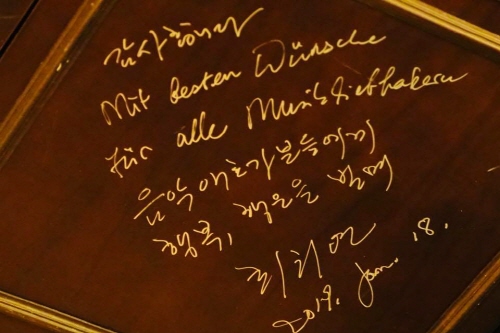 감사합니다
Mit besten Wünsche
für alle Musikliebhabern
음악애호가분들에게
행복, 행운을
2019. Jan. 18.